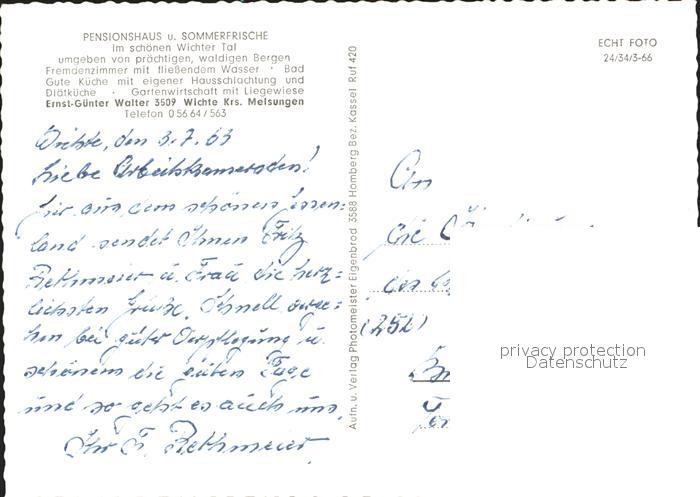 PENSIONSHAUS u. SOMMERFRISCHE
Im schönen Wichter Tal
umgeben von prächtigen, waldigen Bergen
Fremdenzimmer mit fließendem Wasser · Bad
Gute Küche mit eigener Hausschlachtung und
Diätküche · Gartenwirtschaft mit Liegewiese
Ernst-Günter Walter 3509 Wichte Krs. Melsungen
Telefon 0 56 64 / 563
Wichte, den 3.7.63
Liebe Arbeitskameraden!
Hier aus dem schönen Hessen-
land sendet Ihnen Fritz
Rethmeier u. Frau die herz-
lichsten Grüße. Schnell verge-
hen bei guter Verpflegung u.
schönem die guten Tage
und so geht es auch uns.
Ihr F. Rethmeier
Aufn. u. Verlag Photomeister Eigenbrod 3588 Homberg Bez. Kassel Ruf 420
ECHT FOTO
24/34/3-66
An
die
(252)
privacy protection
Datenschutz